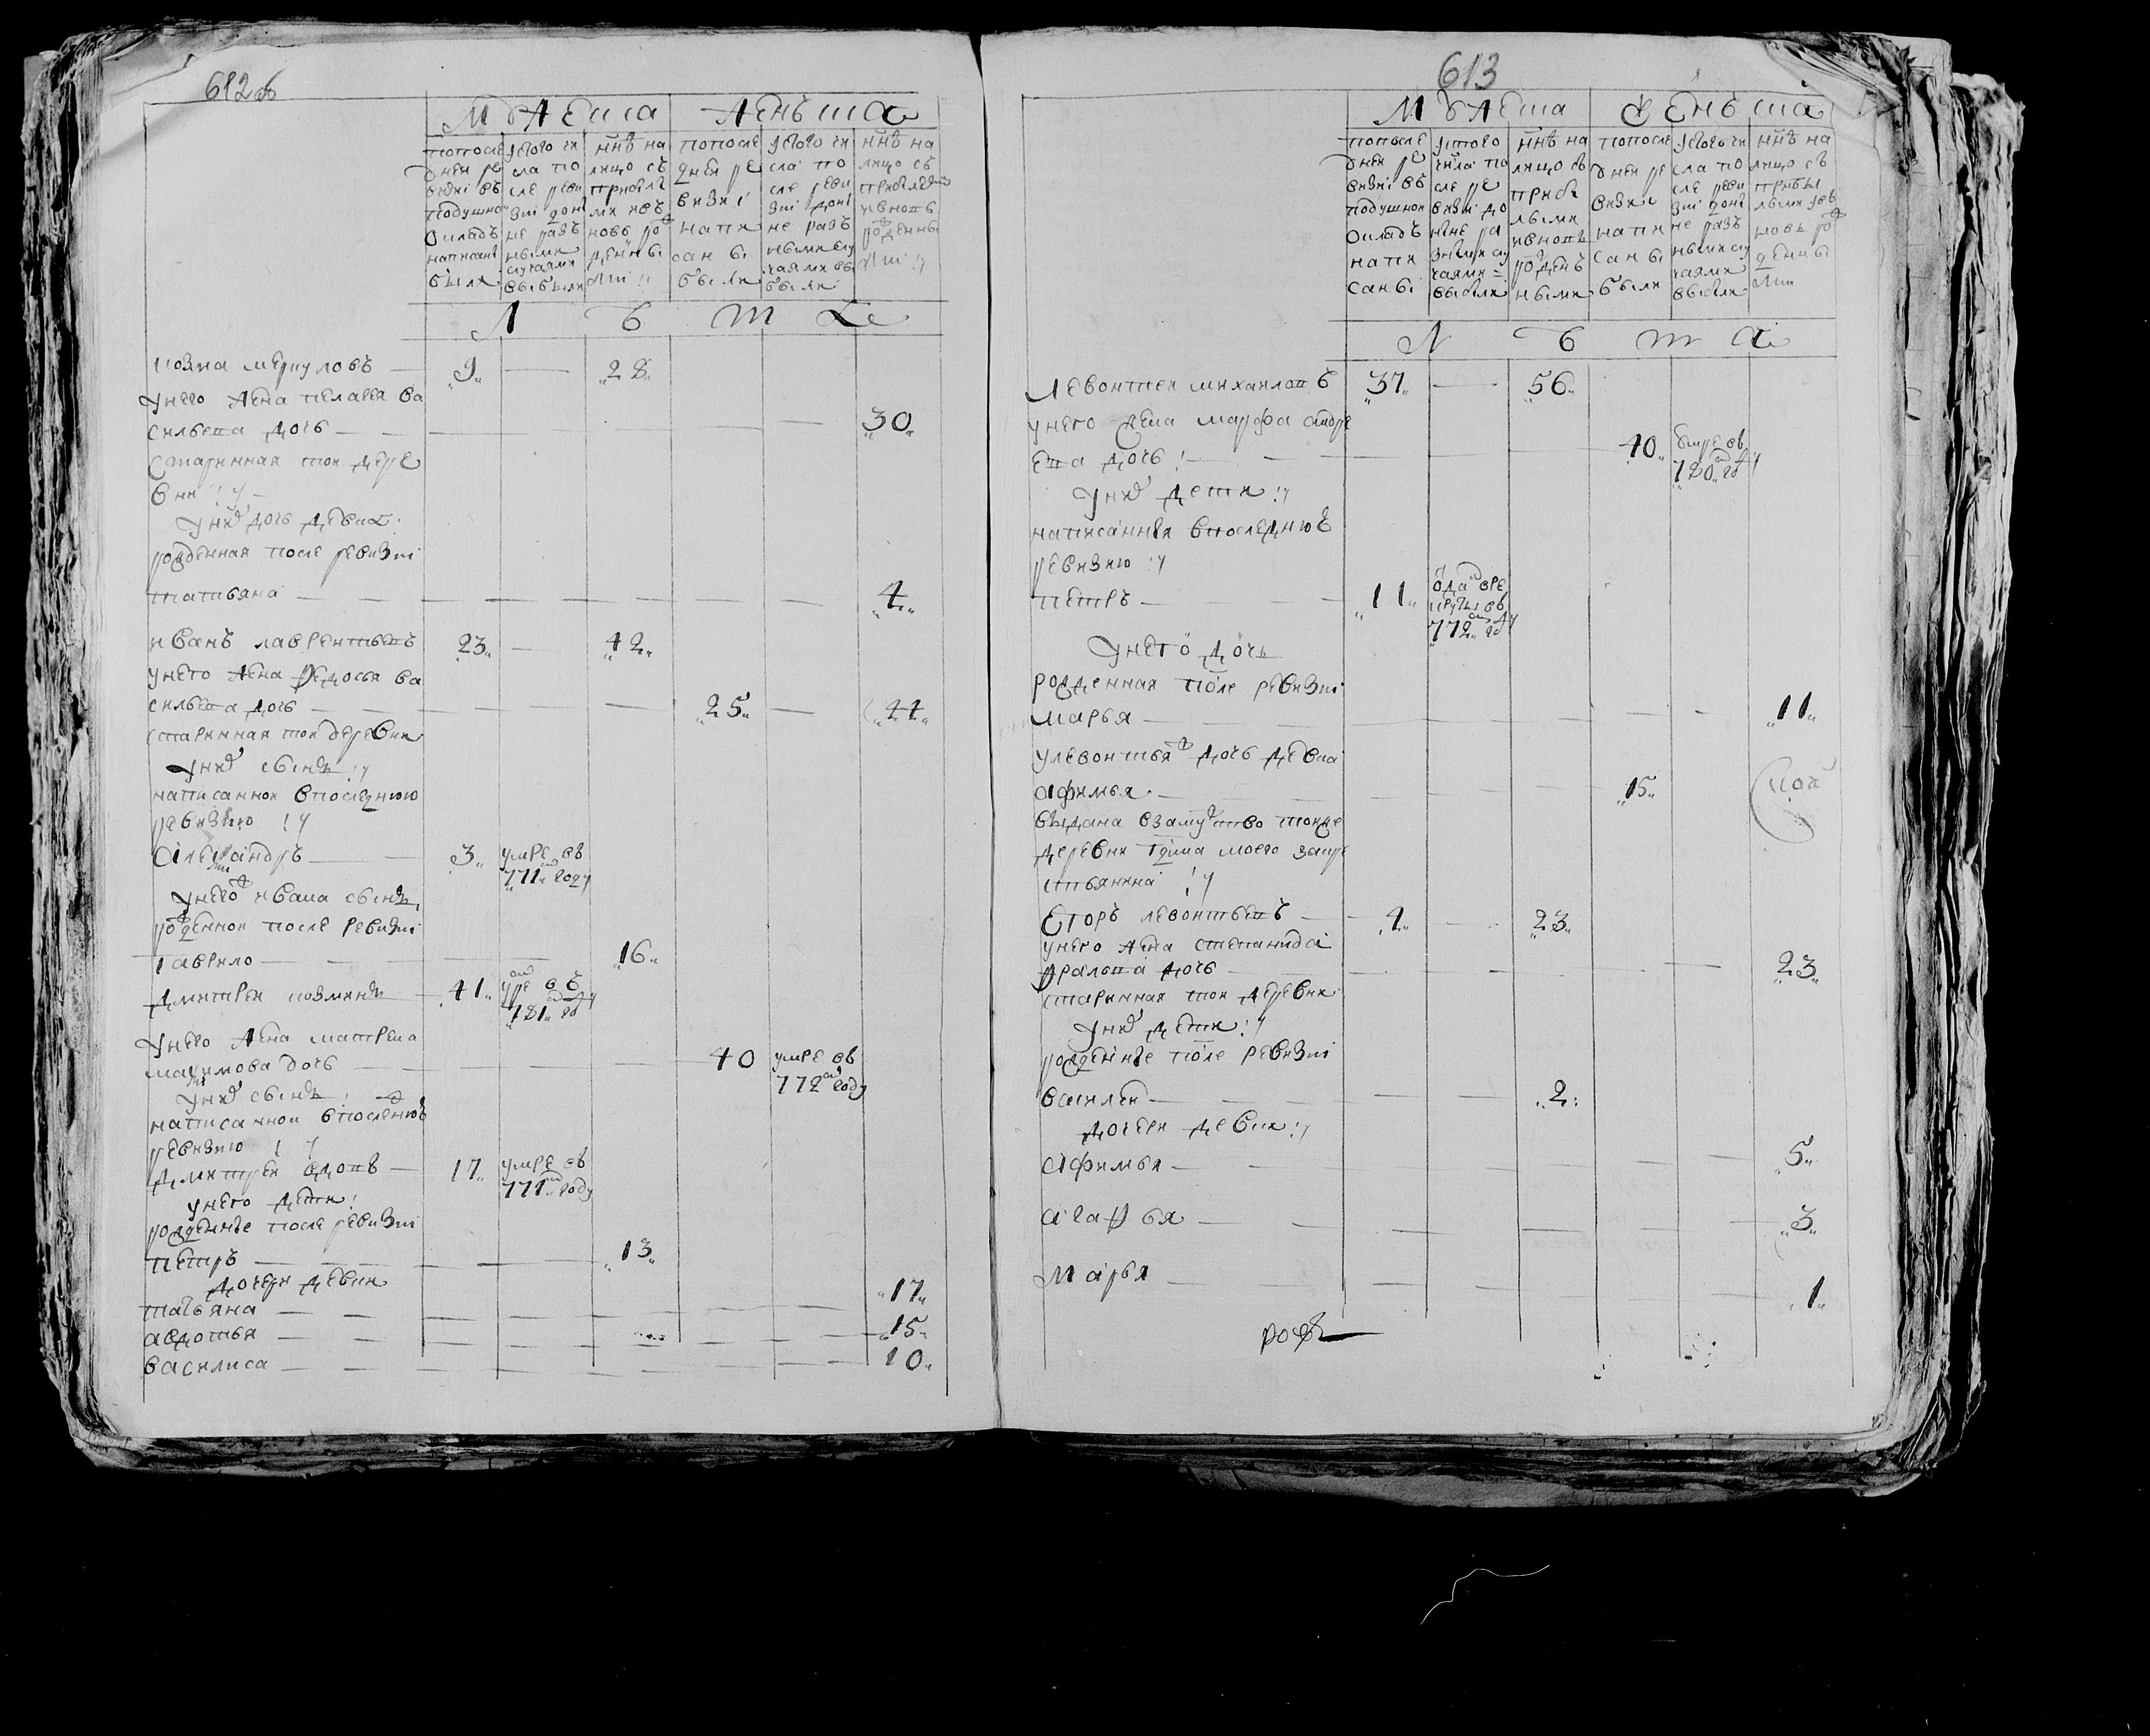 612 об
мужеска
женъска
попосле
дней ре
визиї въ
подушной
окладъ
написаны
были
устого чи
сла по
сле реви
зиї дон
не разъ
ными
случаями
выбыли
ннѣ на
лицо съ
прибылы
ми ивъ
новь ро
жденны
ми
попосле
дней ре
визиї
напи
саны
были
устого чи
сла по
сле реви
зиї дон
не разъ
ными слу
чаями вы
были
ннѣ на
лицо съ
прибылыми
ивновь
рожденны
ми
Л Ѣ т а
козма меркуловъ 9 28
унего жена пелагея ва
сильева дочь 30
старинная той дере
вни
унихъ дочь девка
рожденная после ревизиї
татьяна 4
иванъ лаврентьевъ 23 42
унего жена федосья ва
сильева дочь 25 44
старинная той деревни
унихъ сынъ
написанной впоследнюю
ревизию
александръ 3 умре въ
771м году
унего ивана сынъ
рожденной после ревизиї
гаврило 16
дмитрей козминъ 41 умре въ
781м году
унего жена матрена
максимова дочь 40 умре въ
772м году
унихъ сынъ
написанной впоследнюю
ревизию
дмитрей вдовъ 17 умре въ
771м году
унего дети
рожденные после ревизиї
петръ 13
дочери девки
татьяна 17
авдотья 15
василиса 10
613
мужеска
женъска
попосле
дней ре
визиї въ
подушной
окладъ
напи
саны
устого
числа по
сле ре
визиї до
ныне ра
зными слу
чаями
выбыли
ннѣ на
лицо съ
прибы
лыми
ивновь
рожденъ
ными
попосле
дней ре
визиї
напи
саны
были
устого чи
сла по
сле реви
зиї дон
не разъ
ными слу
чаями
выбыли
ннѣ на
лицо съ
прибы
лыми ивъ
новь ро
жденны
ми
Л Ѣ т а
левонтей михаиловъ 37 56
унего жена марфа андре
ева дочь 40 умре въ
780м году
унихъ дети
написанныя впоследнюю
ревизию
петръ 11 отданъ вре
круты въ
772м году
унего дочь
рожденная после ревизиї
марья 11
улевонтья дочь девка
афимья 15
выдана взамужство тойже
деревни
Егоръ левонтьевъ 4 23
унего жена степанида
фролова дочь 23
старинная той деревни
унихъ дети
рожденные после ревизиї
василей 2
дочери девки
афимья 5
агафья 3
Марья 1